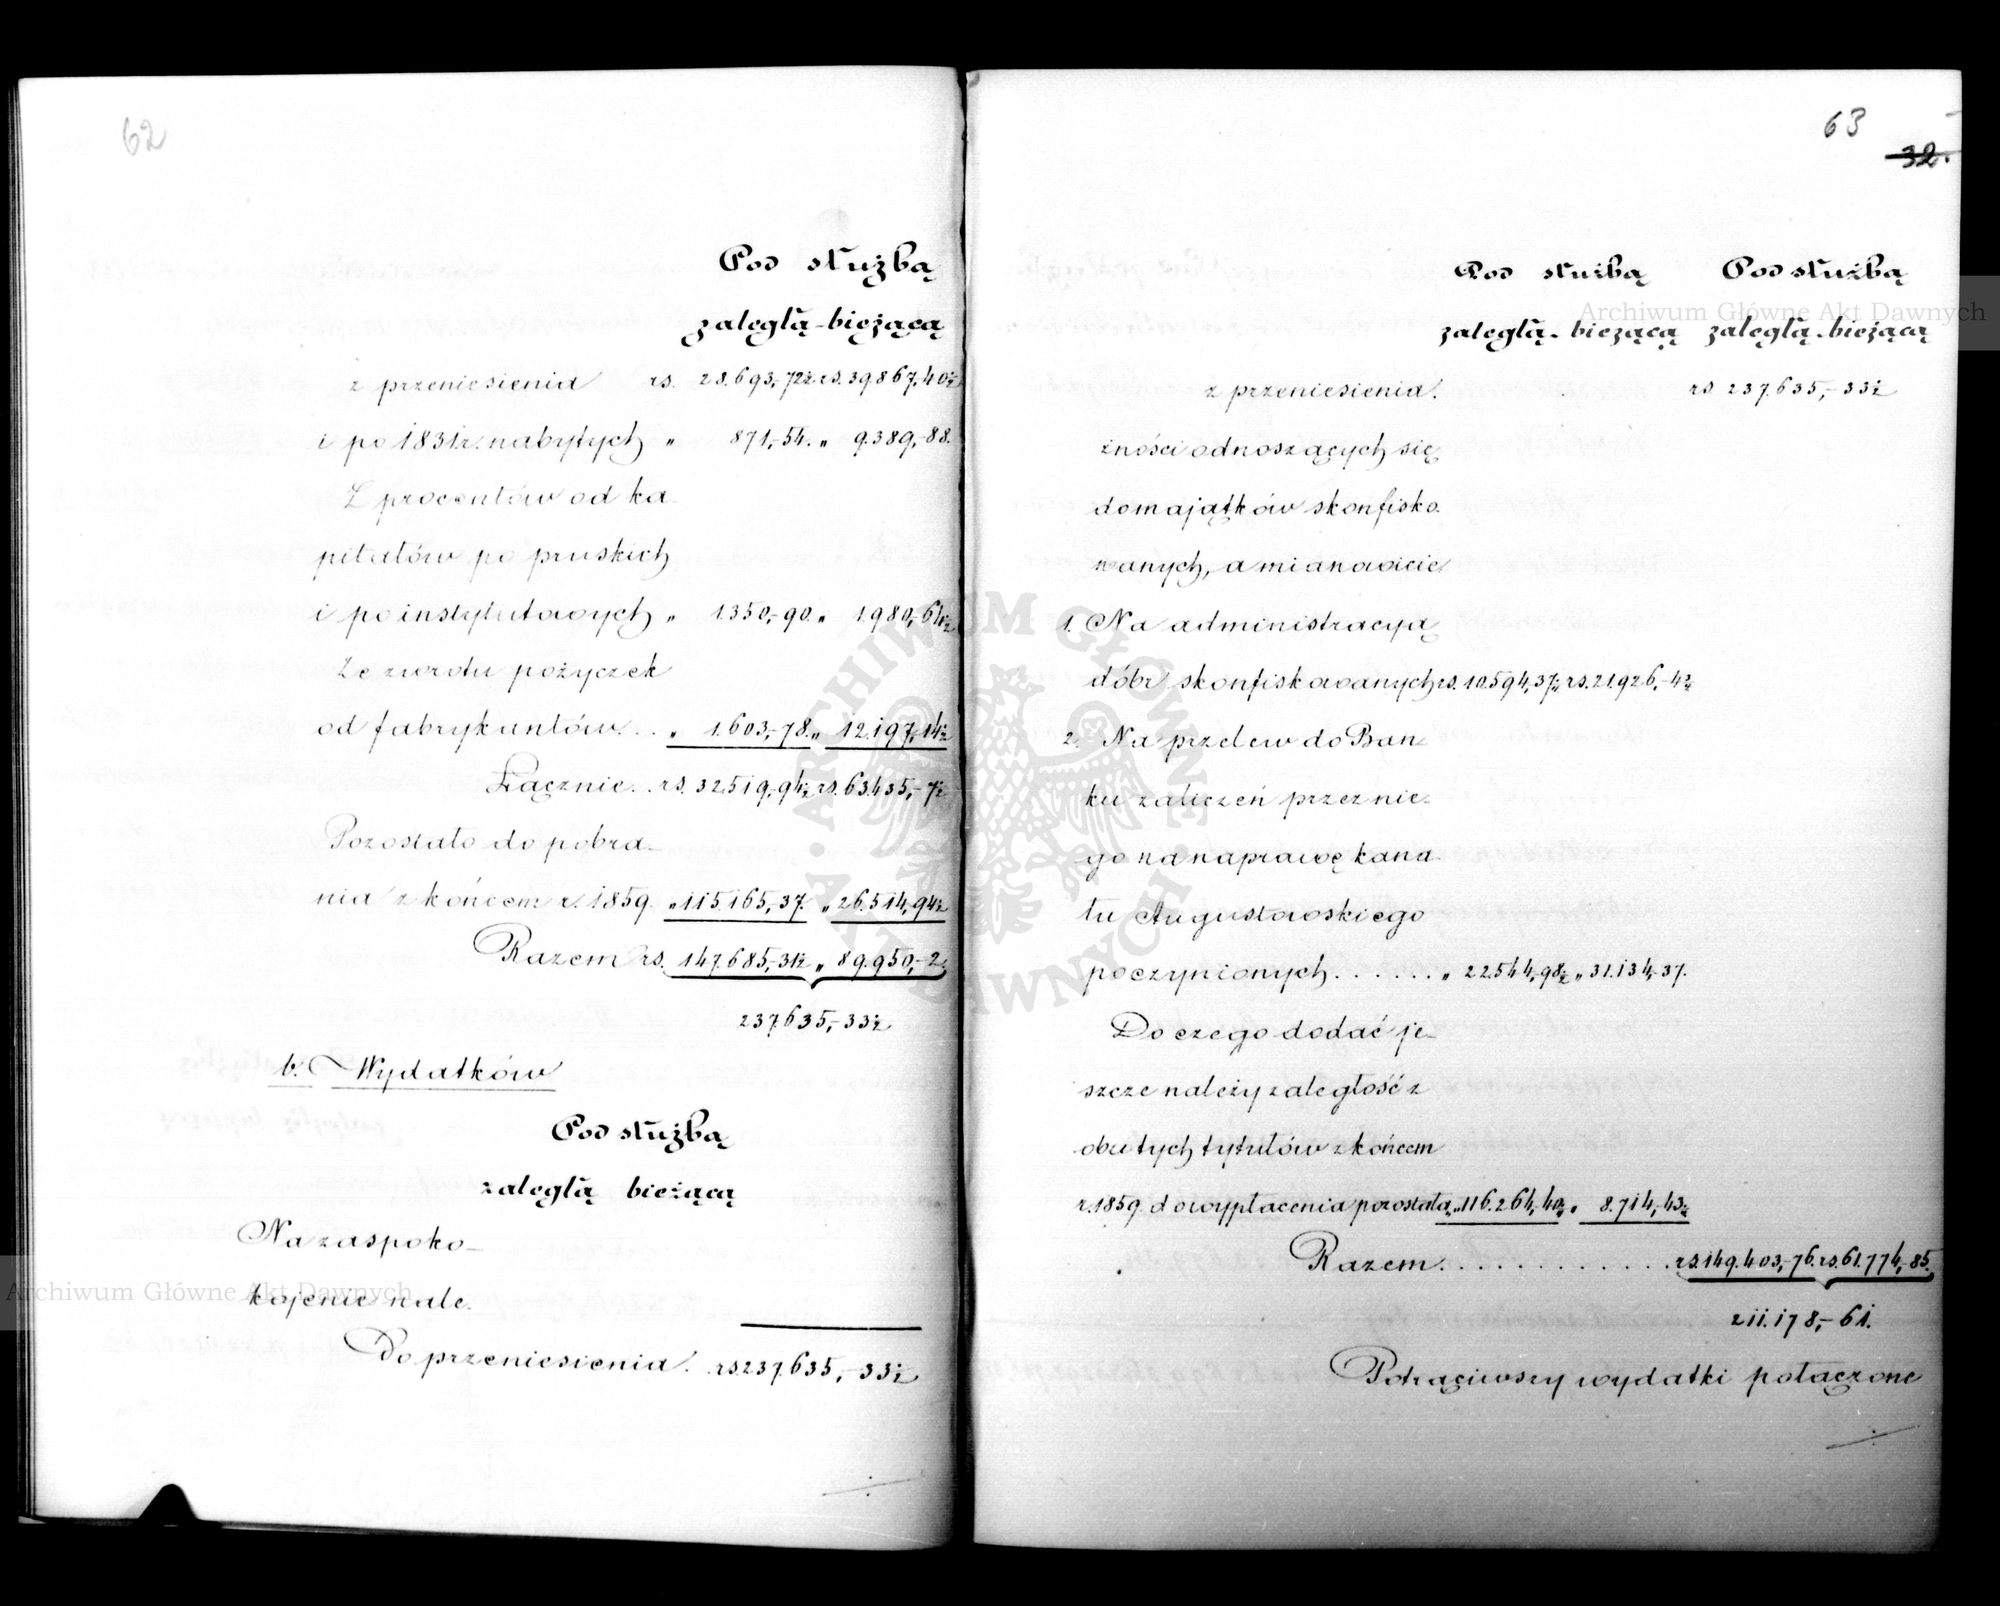 62
Pod służbą
zaległą - bieżącą
z przeniesienia rs. 28.693,-72½ rs. 39.867,40½
i po 1831 r. nabytych " 871,-54. " 9.389,-88.
Z procentów od ka
pitałów po pruskich
i po instytutowych " 1.350,-90. " 1.980,-64½
Ze zwrotu pożyczek
od fabrykantów . . " 1.603,-78. " 12.197,-14½
Łącznie . . rs. 32.519,-94½ rs. 63.435,-7½
Pozostało do pobra-
nia z końcem r. 1859. " 115.165,-37. " 26.514,-94½
Razem rs. 147.685,-31½ " 89.950,-2.
237.635,-33½
b. Wydatków
Pod służbą
zaległą bieżącą
Na zaspoko-
kojenie nale.
Do przeniesienia. rs. 237.635,-33½
63
32.
Pod służbą Pod służbą
zaległą - bieżącą zaległą - bieżącą
z przeniesienia. rs. 237.635,-33½
żności odnoszących się
do majątków skonfisko.
wanych, a mianowicie
1. Na administracyą
dóbr skonfiskowanych rs. 10.594,37½ rs. 21.926,-4½
2. Na przelew do Ban.
ku zaliczeń przez nie-
go na naprawę kana.
łu Augustowskiego
poczynionych . . . . . . " 22.544,-98½ " 31.134,-37.
Do czego dodać je-
szcze należy zaległość z
obu tych tytułów z końcem
r. 1859. do wypłacenia pozostałą " 116.264,-40½ " 8.714,-43½
Razem . . . . . . . . . . . . . rs. 149.403,-76. rs. 61.774,-85.
211.178,-61.
Potrąciwszy wydatki połączone
Archiwum Główne Akt Dawnych
Archiwum Główne Akt Dawnych
ARCHIWUM GŁÓWNE AKT DAWNYCH